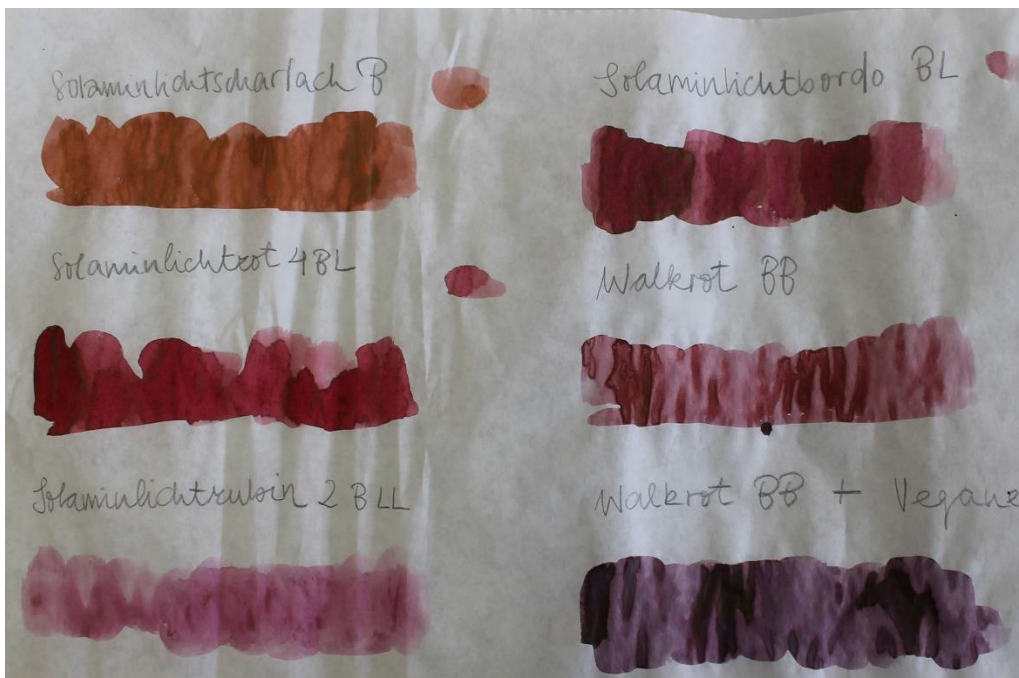 Solaminlichtscharlach B
Solaminlichtrot 4BL
Solaminlichtrubin 2 BLL
Solaminlichtbordo BL
Walkrot BB
Walkrot BB + Veganz